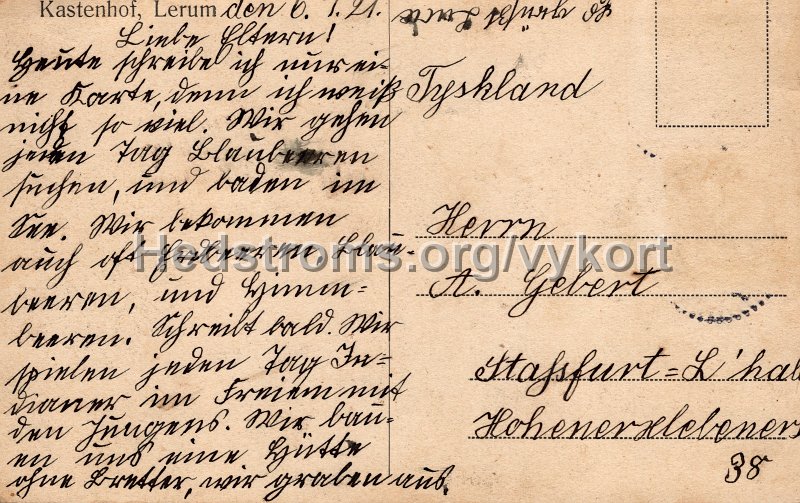 Kastenhof, Lerum den 6. 7. 21.
Liebe Eltern!
Heute schreibe ich nur ei-
ne Karte, denn ich weiß
nicht so viel. Wir gehen
jeden Tag Blaubeeren
suchen, und baden im
See. Wir bekommen
auch oft Erdbeeren, Blau-
beeren, und Himm-
beeren. Schreibt bald. Wir
spielen jeden Tag In-
dianer im Freiem mit
den Jungens. Wir bau-
en uns eine Hütte
ohne Bretter, wir graben aus.
Es grüßt
Tyskland
Herrn
A. Gebert
Stassfurt=L'hal
Hohenerxlebener
38
Hedstroms.org/vykort